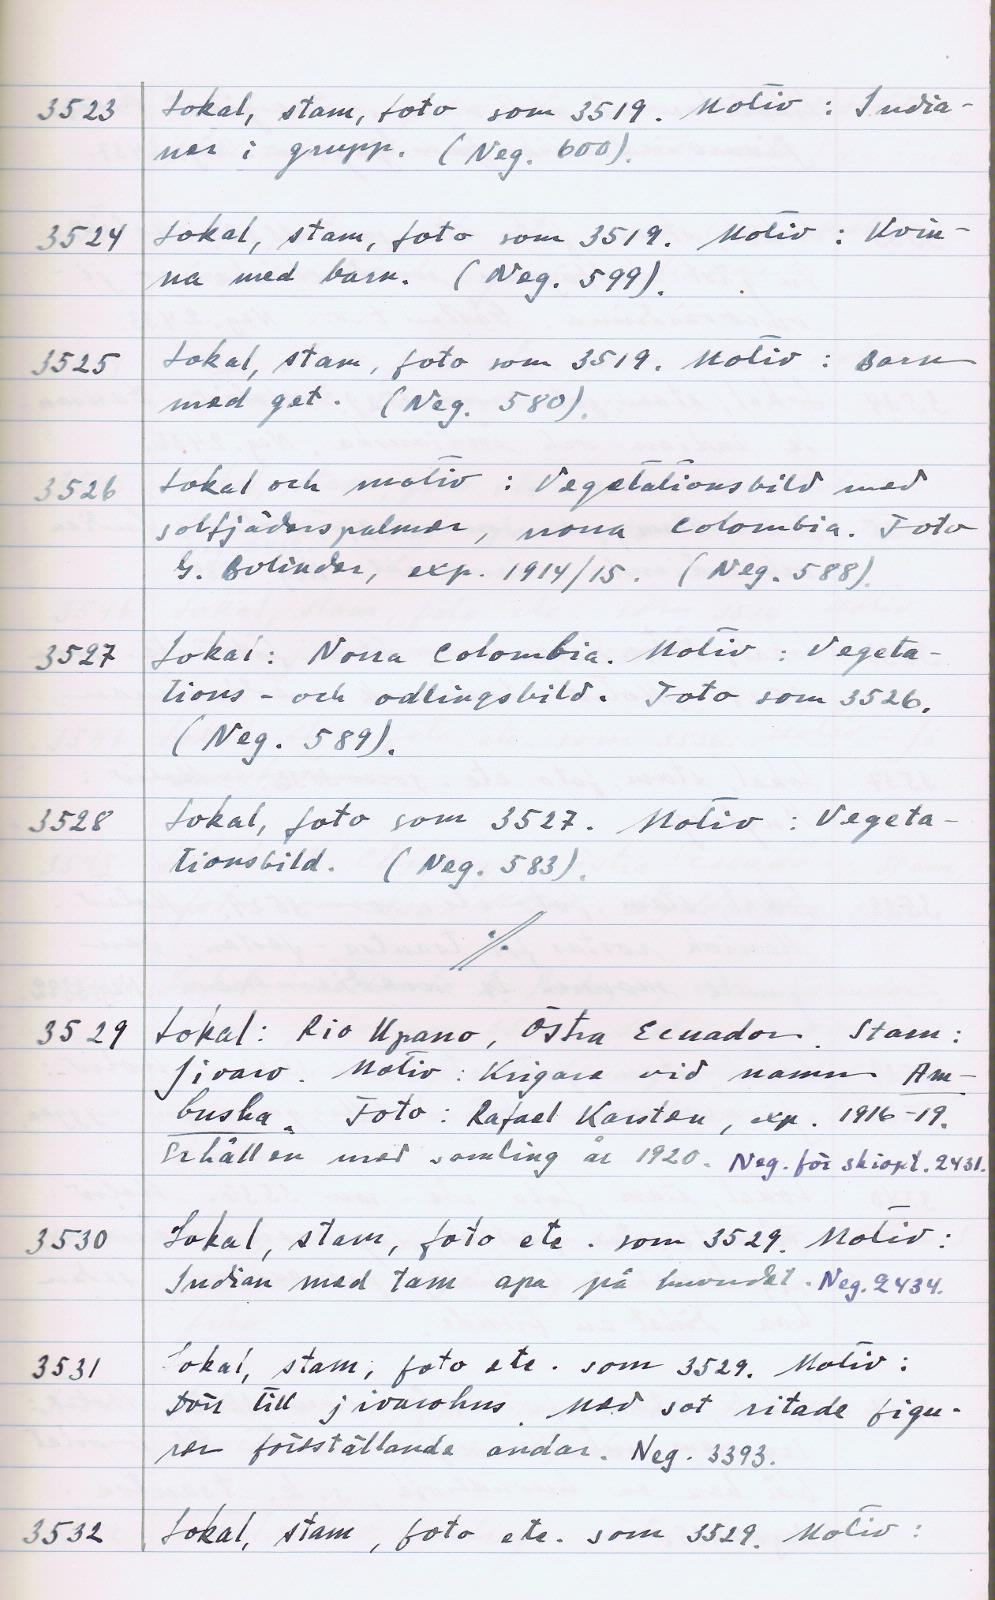 3523 Lokal, stam, foto som 3519. Motiv : India-
ner i grupp. (Neg. 600).
3524 Lokal, stam, foto som 3519. Motiv : Kvin-
na med barn. (Neg. 599).
3525 Lokal, stam, foto som 3519. Motiv : Barn
med get. (Neg. 580).
3526 Lokal och motiv : Vegetationsbild med
solfjäderspalmer, norra Colombia. Foto
G. Bolinder, exp. 1914/15. (Neg. 588).
3527 Lokal: Norra Colombia. Motiv : Vegeta-
tions- och odlingsbild. Foto som 3526.
(Neg. 589).
3528 Lokal, foto som 3527. Motiv : Vegeta-
tionsbild. (Neg. 583).
·/.
3529 Lokal: Rio Upano, Östra Ecuador. Stam:
Jivaro. Motiv : Krigare vid namn Am-
busha. Foto : Rafael Karsten, exp. 1916-19.
Erhållen med samling år 1920. Neg. för skiopt. 2431.
3530 Lokal, stam, foto etc. som 3529. Motiv:
Indian med tam apa på huvudet. Neg. 2434.
3531 Lokal, stam, foto etc. som 3529. Motiv:
Dörr till jivarohus. Med sot ritade figu-
rer föreställande andar. Neg. 3393.
3532 Lokal, stam, foto etc. som 3529. Motiv: